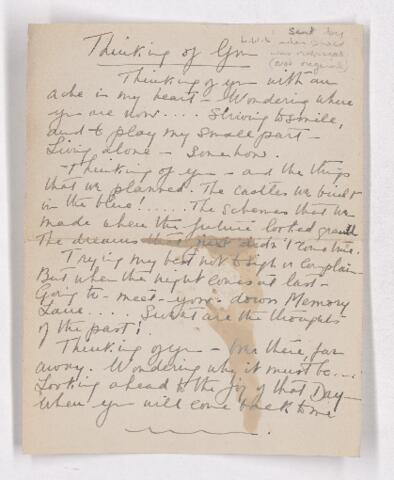 Thinking of You
sent by
L.W.S. when peace
was restored
(not required)
Thinking of you with an
ache in my heart - Wondering where
you are now.... Striving to smile,
and to play my small part -
Living alone - Somehow.
Thinking of you - and the things
that we planned. The castles we built
in the blue!..... The schemes that we
made when the future looked grand
The dreams that just didn't come true.
Trying my best not to sigh or complain -
But when the night comes at last -
Going to - meet - you - down Memory
Lane..... Sweet are the thoughts
of the past!
Thinking of you - over there, far
away. Wondering why it must be...
Looking ahead to the joy of that Day -
When you will come back to me